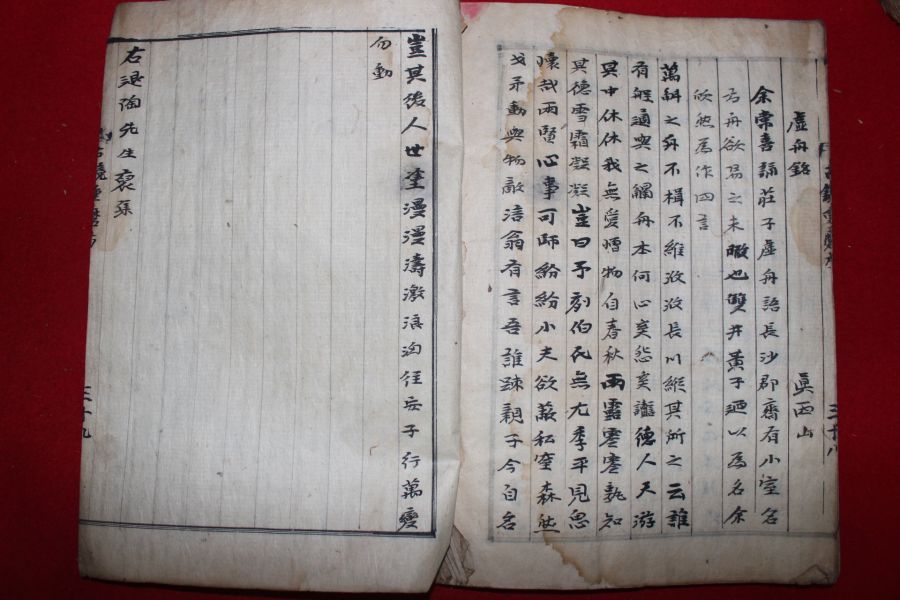 虛舟銘 眞西山
余常喜誦莊子虛舟語長沙郡齋有小室名
爲舟欲易之未暇也雙井黃子迺以爲名余
欣然爲作四言
萬斛之舟不楫不維長川縱其所之云誰
有艇適與之觸舟本何心奚怨奚讟德人天游
其中休休我無愛憎物自春秋雨露零零孰知
其德雪霜凝凝豈曰予刻伯氏無尤季平見思
懷哉兩賢心事可師紛紛小夫欲蔽私窒森然
戈矛動與物敵涪翁有言吾誰踈親子今自名
豈其後人世塗漫漫濤激浪洶往矣子行萬變
勿動
右退陶先生裒集
三十九